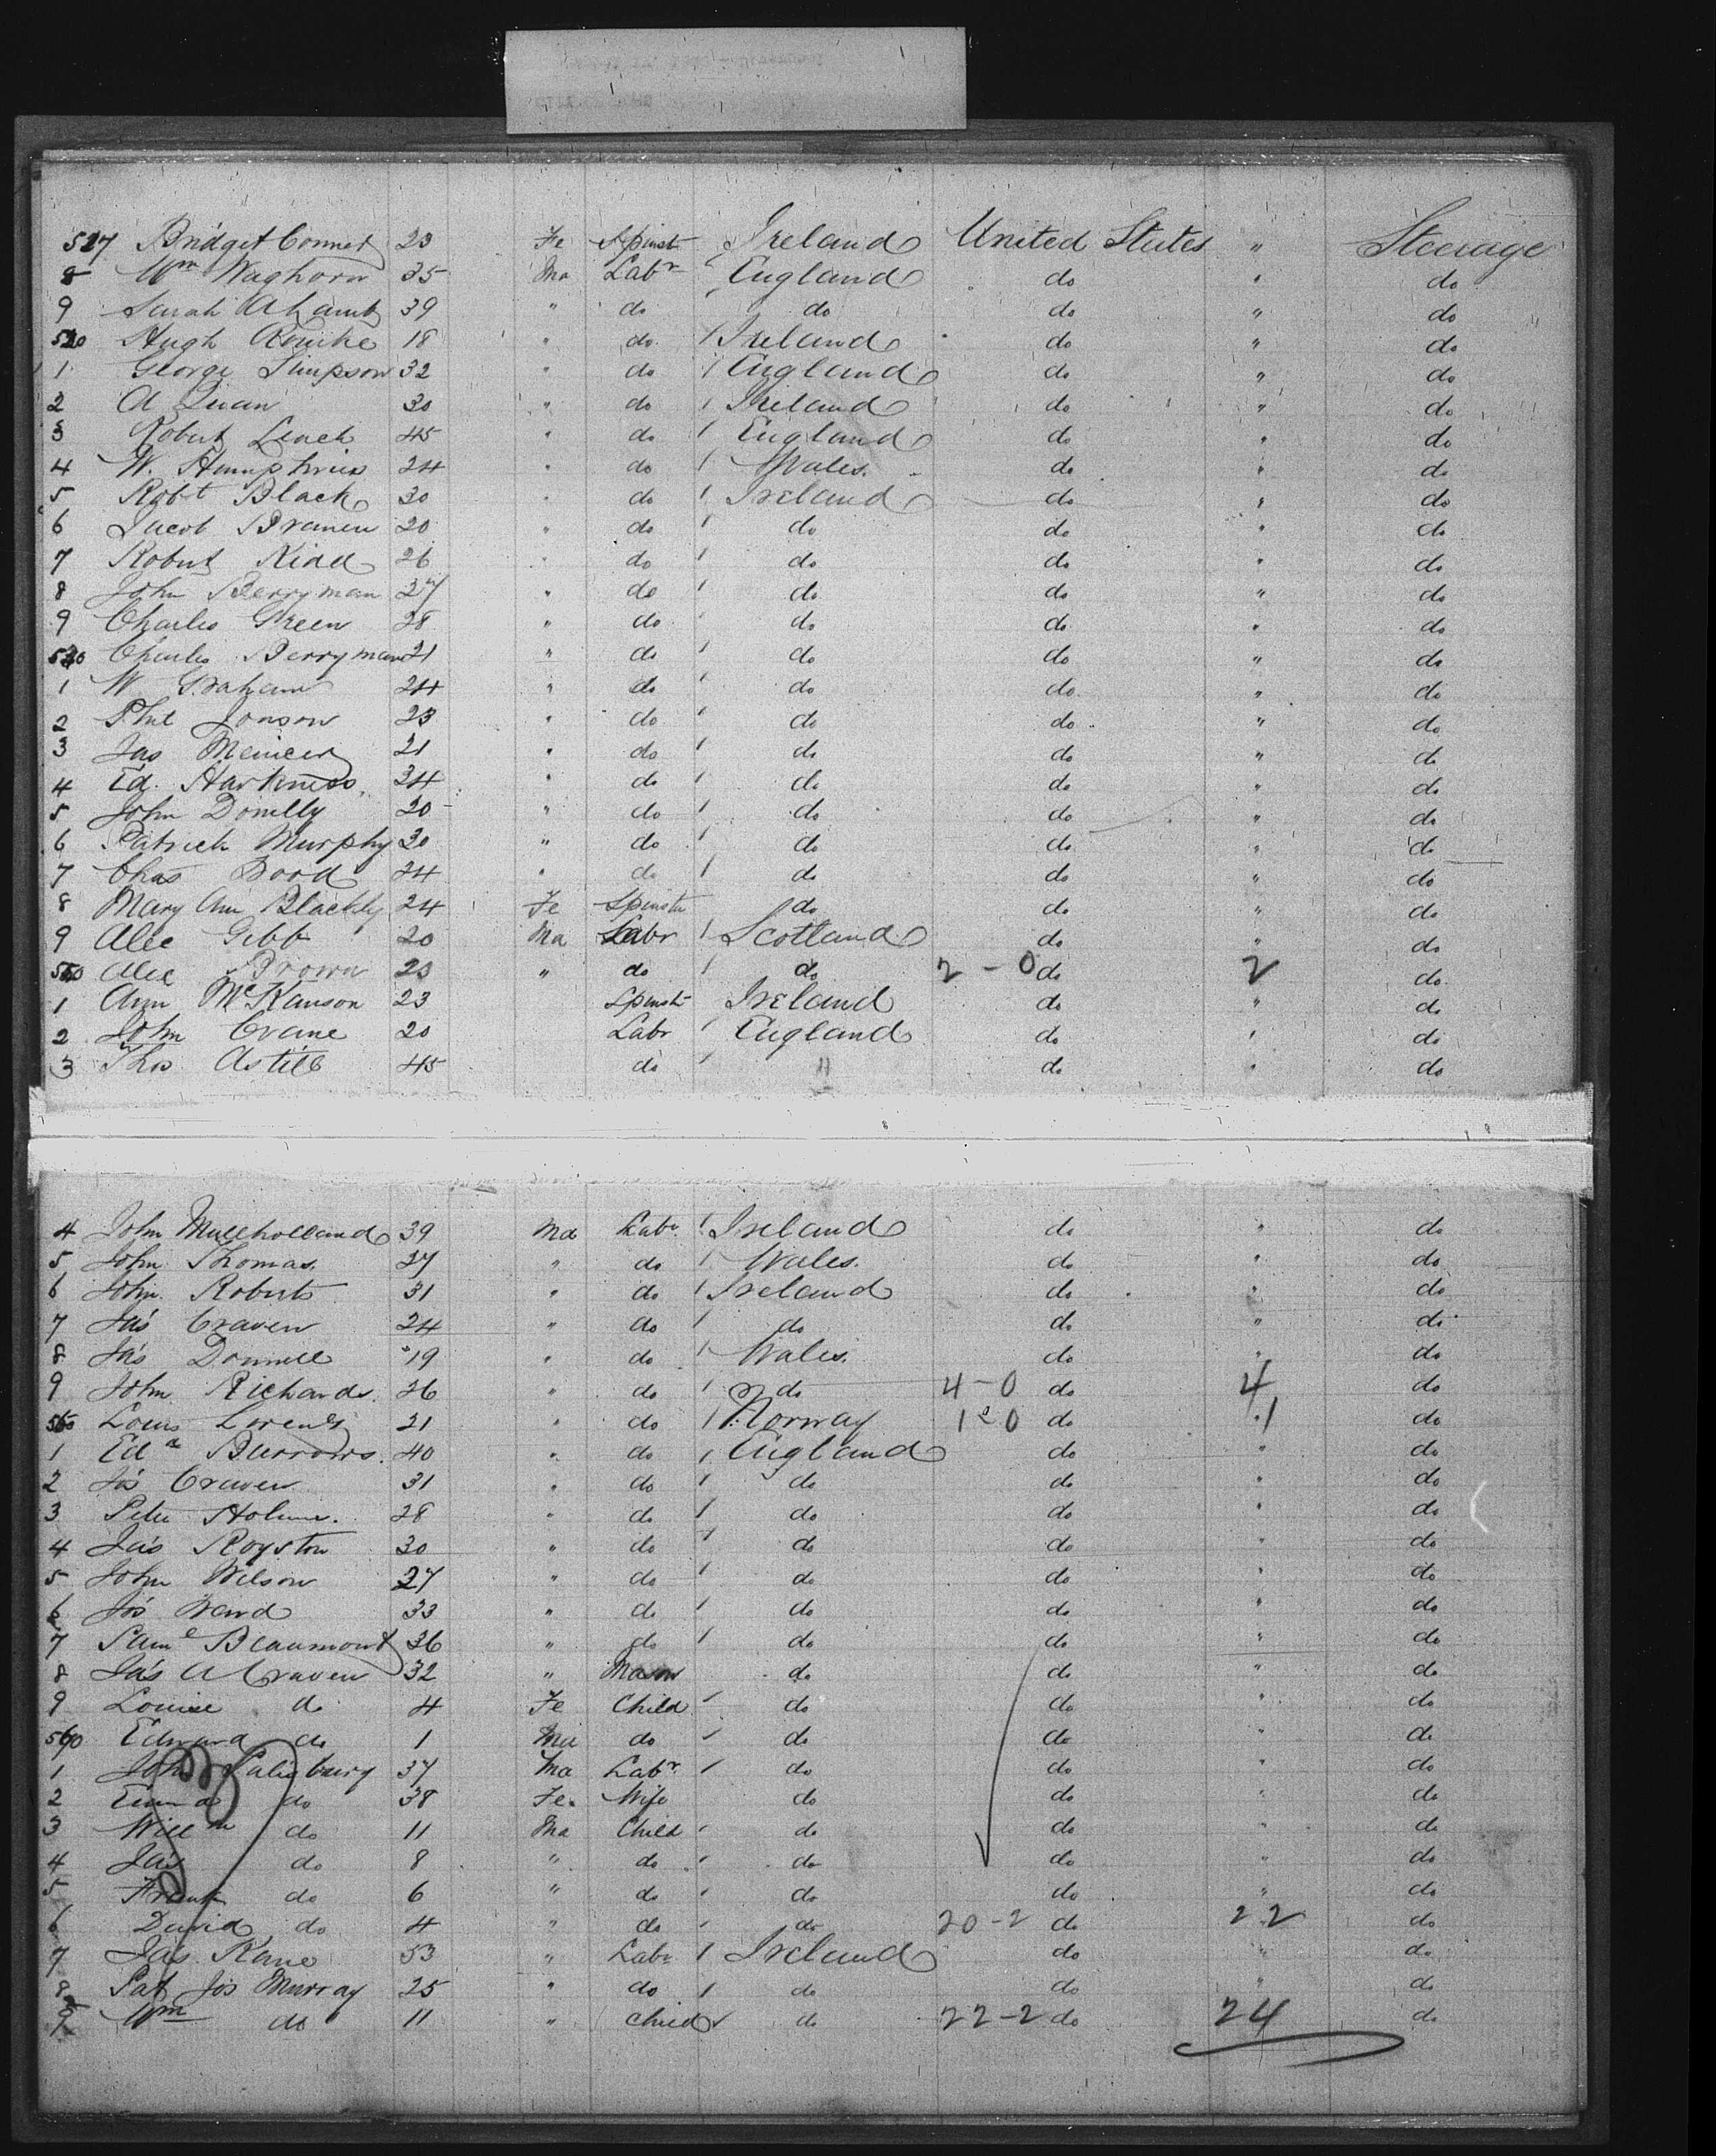 527 Bridget Conner 23 Fe Spinst Ireland United States " Steerage
8 Wm Waghorn 35 Ma Labr England do " do
9 Sarah A Lamb 39 " do do do " do
Hugh Rourke 18 " do Ireland do " do
1 George Simpson 32 " do England do " do
2 A 30 " do Ireland do " do
3 Robert Leach 45 " do England do " do
4 W. Humphries 24 " do Wales. do " do
5 Robt Black 30 " do Ireland do " do
6 Jacob Branen 20 " do do do " do
7 Robert Kidd 26 " do do do " do
8 John Berryman 27 " do do do " do
9 Charles Green 28 " do do do " do
Charles Berryman 21 " do do do " do
1 W Graham 24 " do do do " do
2 Phil Jonson 23 " do do do " do
3 Jas 21 " do do do " do
4 Ed. Harkness. 34 " do do do " do
5 John Donelly 20 " do do do " do
6 Patrick Murphy 30 " do do do " do
7 Chas 24 " do do do " do
8 Mary Ann Blackly 24 Fe Spinstr do do " do
9 Alec Gibb 20 Ma Labr Scotland do " do
Alec Brown 23 " do do 2-0 do 2 do
1 Ann McKanson 23 Spinst Ireland do " do
2 John Crane 20 Labr England do " do
3 Thos Astill 45 do " do " do
4 John Mullholland 39 Ma Labr Ireland do " do
5 John Thomas. 27 " do Wales. do " do
6 John Roberts 31 " do Ireland do " do
7 Jas Craven 24 " do do do " do
8 Jas Donnell 19 " do Wales. do " do
9 John Richards. 26 " do do 4-0 do 4 do
Louis 21 " do Norway 1-0 do 1 do
1 Edd Burrows. 40 " do England do " do
2 Jos Craven 31 " do do do " do
3 Peter Holme. 28 " do do do " do
4 Jas Royston 30 " do do do " do
5 John Wilson 27 " do do do " do
6 Jos 33 " do do do " do
7 Saml Beaumont 36 " do do do " do
8 Jas A Craven 32 " Mason do do " do
9 Louise do 4 Fe Child do do " do
Edward do 1 Ma do do do " do
1 John Salisbury 37 Ma Labr do do " do
2 do 38 Fe. Wife do do " do
3 Willm do 11 Ma Child do do " do
4 Jas do 8 " do do do " do
5 Frank do 6 " do do do " do
6 David do 4 " do do 20-2 do 22 do
7 Jas. Kane 53 " Labr Ireland do " do
8 Pat Jos Murray 25 " do do do " do
9 Wm do 11 " Child do 22-2 do 24 do